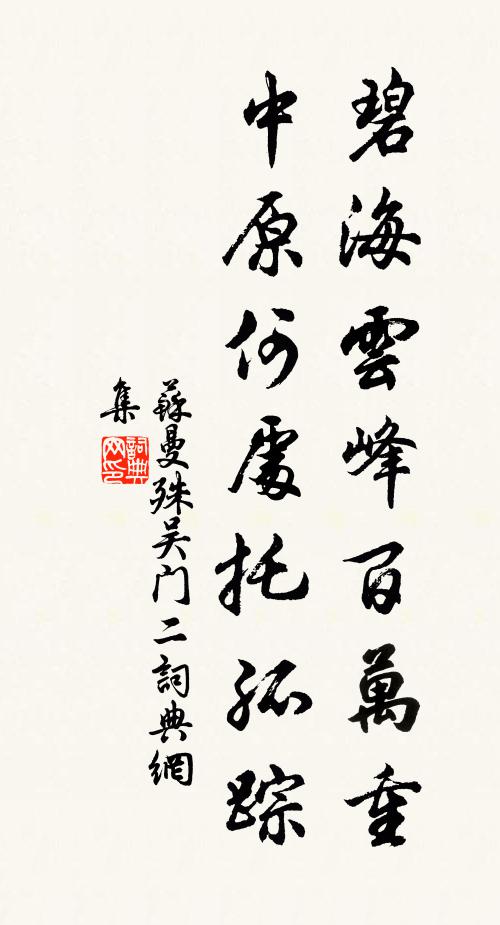 碧海雲峰百萬重
中原何處托孤踪
蘇曼殊吴门二詞典網
集
詞典網印